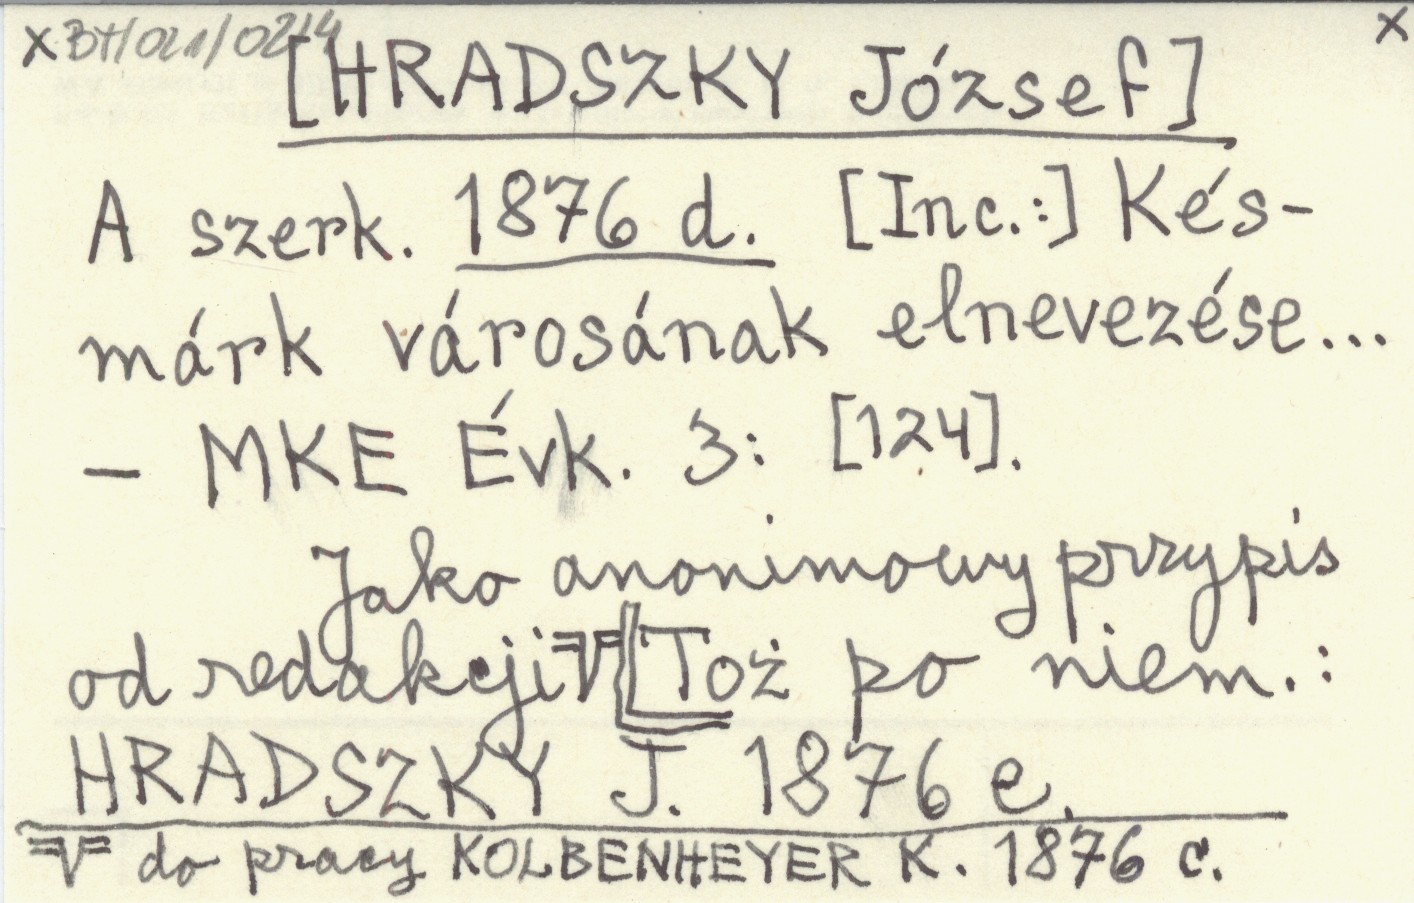 x BH/021/0214 x
[HRADSZKY József]
A szerk. 1876 d. [Inc.:] Kés-
márk városának elnevezése...
– MKE Évk. 3: [124].
Jako anonimowy przypis
od redakcji V Toż po niem.:
HRADSZKY J. 1876 e.
V do pracy KOLBENHEYER K. 1876 c.